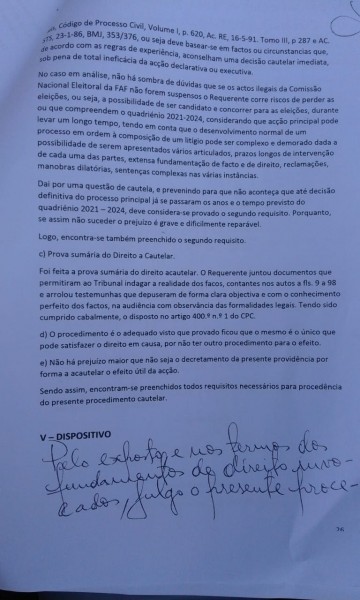 Código de Processo Civil, Volume I, p. 620, Ac. RE, 16-5-91. Tomo III, p 287 e AC.
23-1-86, BMJ, 353/376, ou seja deve basear-se em factos ou circunstancias que,
de acordo com as regras de experiência, aconselham uma decisão cautelar imediata,
sob pena de total ineficácia da acção declarativa ou executiva.
No caso em análise, não há sombra de dúvidas que se os actos ilegais da Comissão
Nacional Eleitoral da FAF não forem suspensos o Requerente corre riscos de perder as
eleições, ou seja, a possibilidade de ser candidato e concorrer para as eleições, durante
ou que compreendem o quadriénio 2021-2024, considerando que acção principal pode
levar um longo tempo, tendo em conta que o desenvolvimento normal de um
processo em ordem à composição de um litígio pode ser complexo e demorado dada a
possibilidade de serem apresentados vários articulados, prazos longos de intervenção
de cada uma das partes, extensa fundamentação de facto e de direito, reclamações,
manobras dilatórias, sentenças complexas nas várias instâncias.
Daí por uma questão de cautela, e prevenindo para que não aconteça que até decisão
definitiva do processo principal já se passaram os anos e o tempo previsto do
quadriénio 2021 – 2024, deve considera-se provado o segundo requisito. Porquanto,
se assim não suceder o prejuízo é grave e dificilmente reparável.
Logo, encontra-se também preenchido o segundo requisito.
c) Prova sumária do Direito a Cautelar.
Foi feita a prova sumária do direito acautelar. O Requerente juntou documentos que
permitiram ao Tribunal indagar a realidade dos facos, contantes nos autos a fls. 9 a 98
e arrolou testemunhas que depuseram de forma clara objectiva e com o conhecimento
perfeito dos factos, na audiência com observância das formalidades legais. Tendo sido
cumprido cabalmente, o disposto no artigo 400.º n.º 1 do CPC.
d) O procedimento é o adequado visto que provado ficou que o mesmo é o único que
pode satisfazer o direito em causa, por não ter outro procedimento para o efeito.
e) Não há prejuízo maior que não seja o decretamento da presente providência por
forma a acautelar o efeito útil da acção.
Sendo assim, encontram-se preenchidos todos requisitos necessários para procedência
do presente procedimento cautelar.
V – DISPOSITIVO
Pelo exposto, e nos termos dos
fundamentos de direito invo-
cados, julgo o presente proce-
36